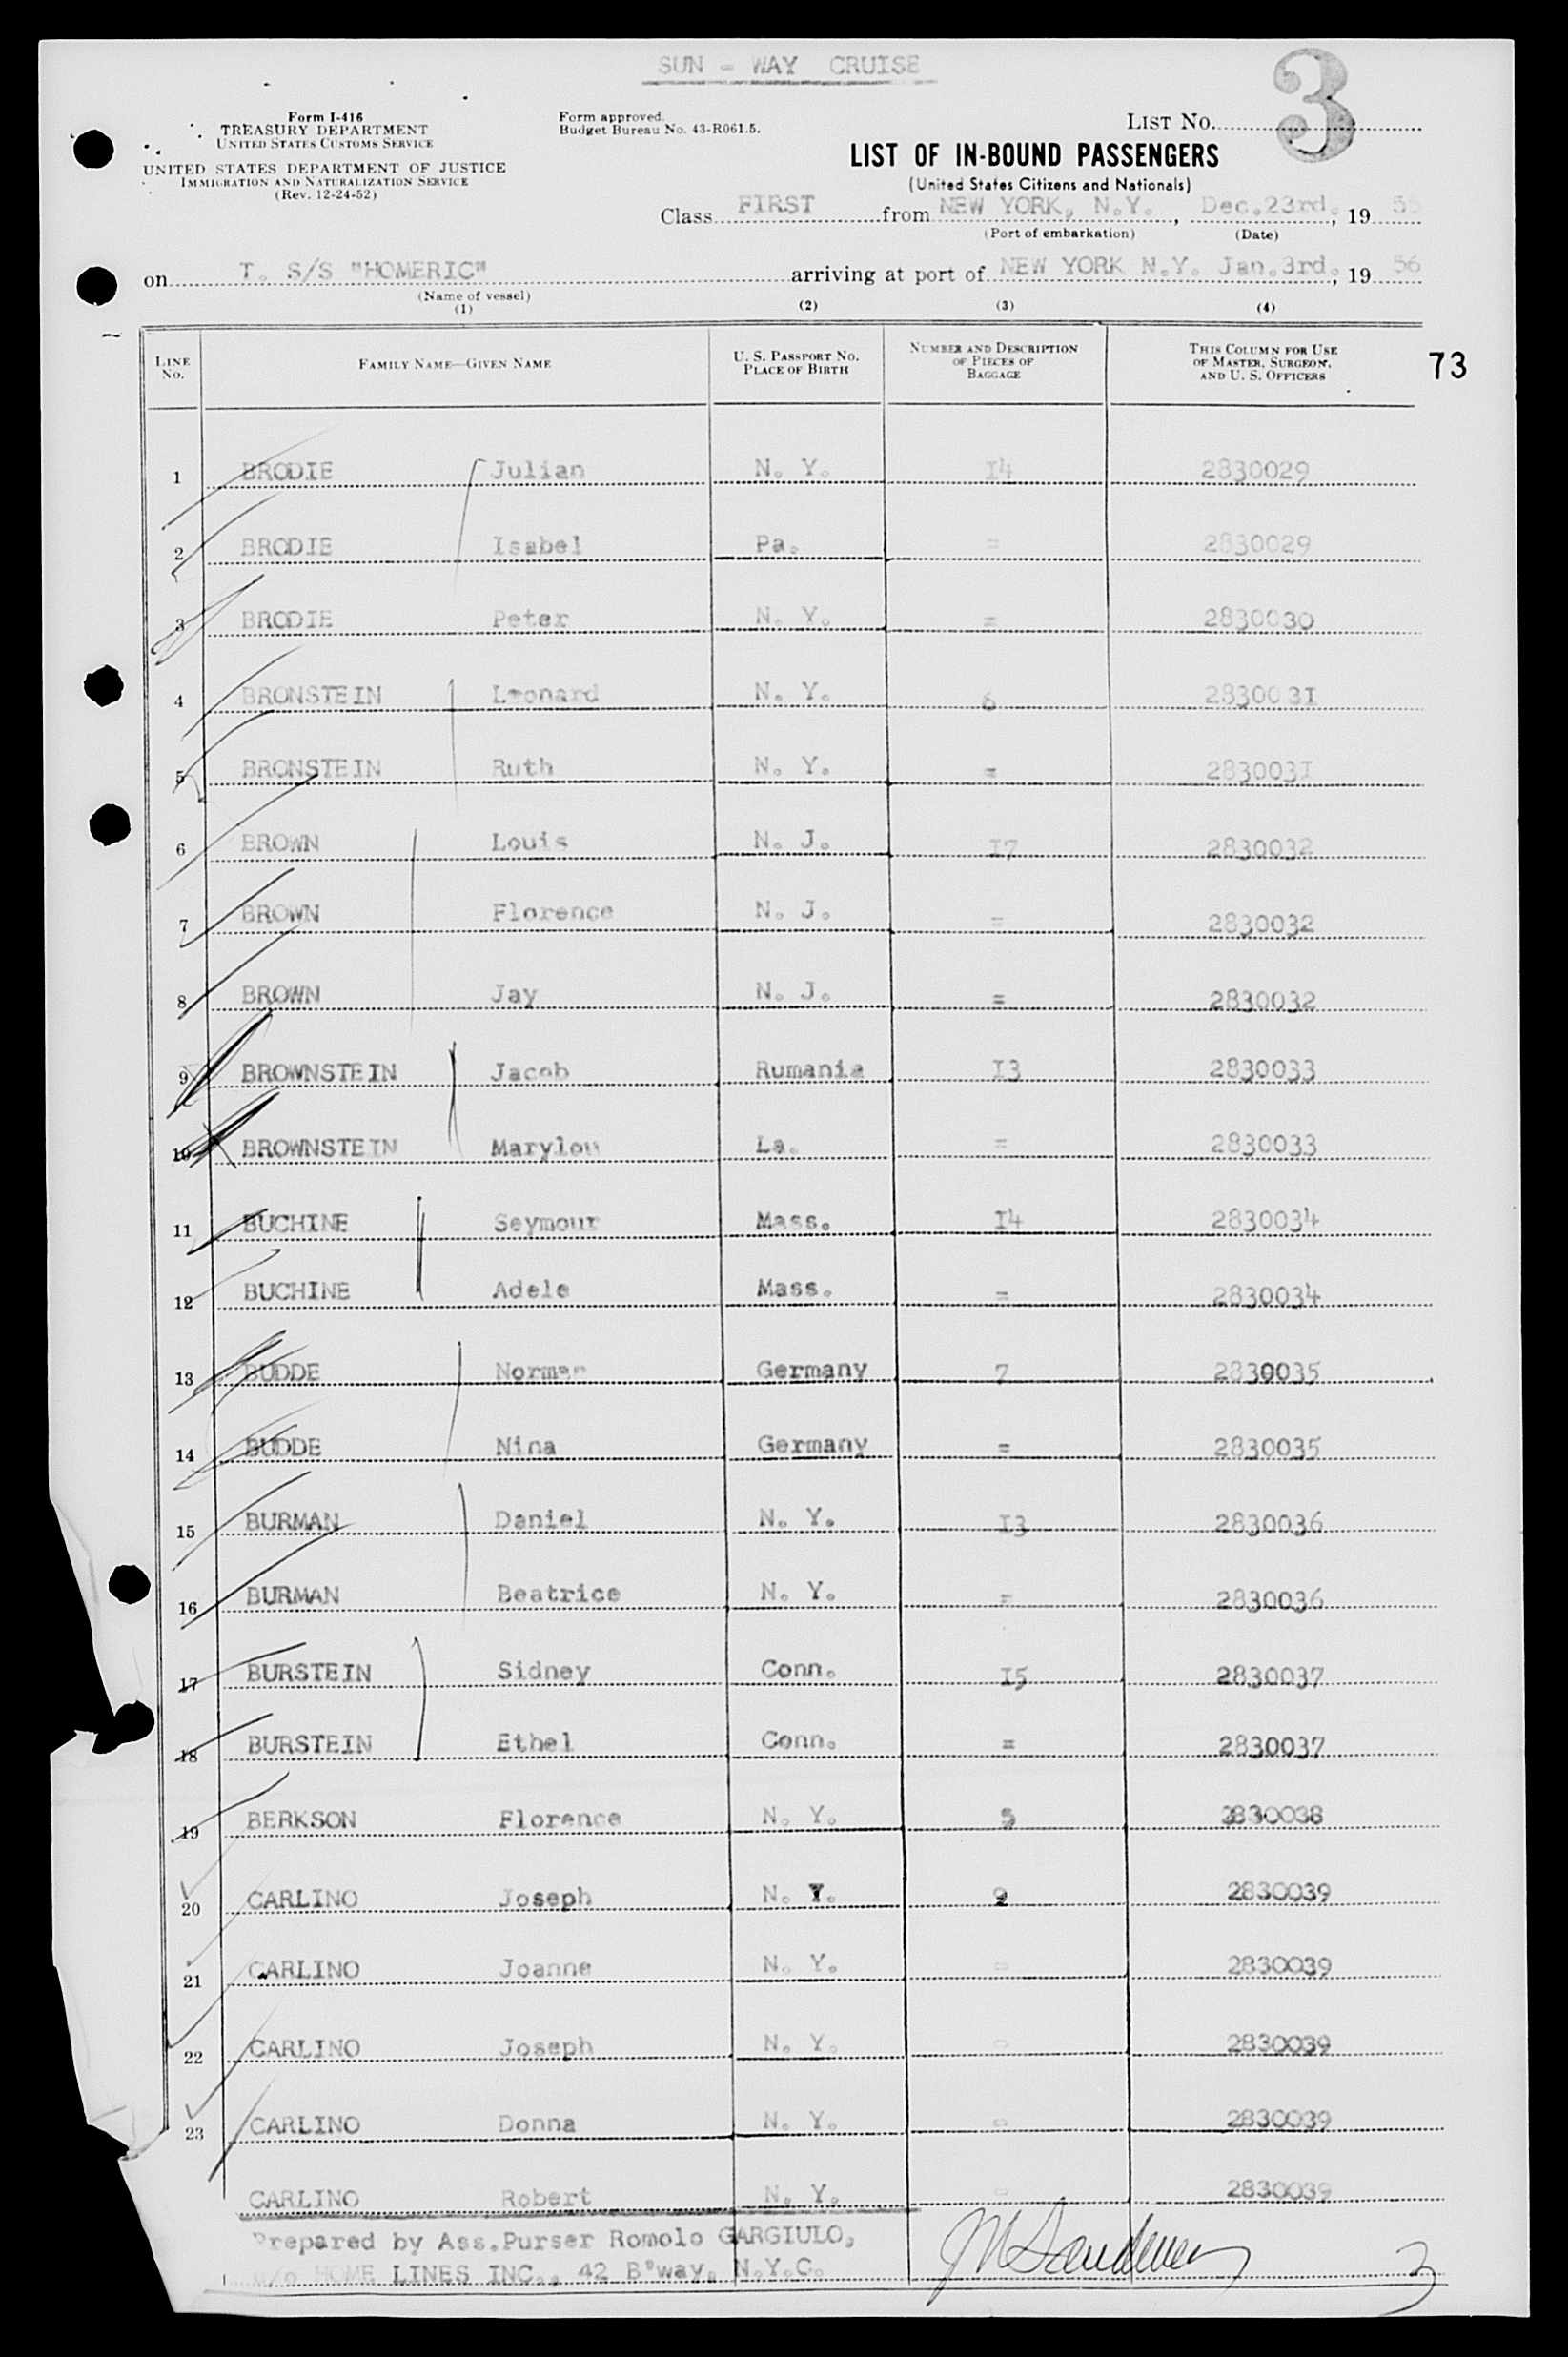 SUN - WAY CRUISE
3
Form I-416
TREASURY DEPARTMENT
UNITED STATES CUSTOMS SERVICE
UNITED STATES DEPARTMENT OF JUSTICE
IMMIGRATION AND NATURALIZATION SERVICE
(Rev. 12-24-52)
Form approved.
Budget Bureau No. 43-R061.5.
LIST NO.
LIST OF IN-BOUND PASSENGERS
(United States Citizens and Nationals)
Class FIRST from NEW YORK, N.Y., Dec.23rd., 19 55
(Port of embarkation) (Date)
on T. S/S "HOMERIC" arriving at port of NEW YORK N.Y. Jan.3rd., 19 56
(Name of vessel)
(1) (2) (3) (4)
LINE NO. FAMILY NAME—GIVEN NAME U. S. PASSPORT NO. PLACE OF BIRTH NUMBER AND DESCRIPTION OF PIECES OF BAGGAGE THIS COLUMN FOR USE OF MASTER, SURGEON, AND U. S. OFFICERS
73
1 BRODIE Julian N. Y. 14 2830029
2 BRODIE Isabel Pa. = 2830029
3 BRODIE Peter N. Y. = 2830030
4 BRONSTEIN Leonard N. Y. 6 2830031
5 BRONSTEIN Ruth N. Y. = 2830031
6 BROWN Louis N. J. 17 2830032
7 BROWN Florence N. J. = 2830032
8 BROWN Jay N. J. = 2830032
9 BROWNSTEIN Jacob Rumania 13 2830033
10 BROWNSTEIN Marylou La. = 2830033
11 BUCHINE Seymour Mass. 14 2830034
12 BUCHINE Adele Mass. = 2830034
13 BUDDE Norman Germany 7 2830035
14 BUDDE Nina Germany = 2830035
15 BURMAN Daniel N. Y. 13 2830036
16 BURMAN Beatrice N. Y. = 2830036
17 BURSTEIN Sidney Conn. 15 2830037
18 BURSTEIN Ethel Conn. = 2830037
19 BERKSON Florence N. Y. 5 2830038
20 CARLINO Joseph N. Y. 9 2830039
21 CARLINO Joanne N. Y. = 2830039
22 CARLINO Joseph N. Y. = 2830039
23 CARLINO Donna N. Y. = 2830039
CARLINO Robert N. Y. = 2830039
Prepared by Ass.Purser Romolo GARGIULO,
HOME LINES INC., 42 B'way, N.Y.C.
3